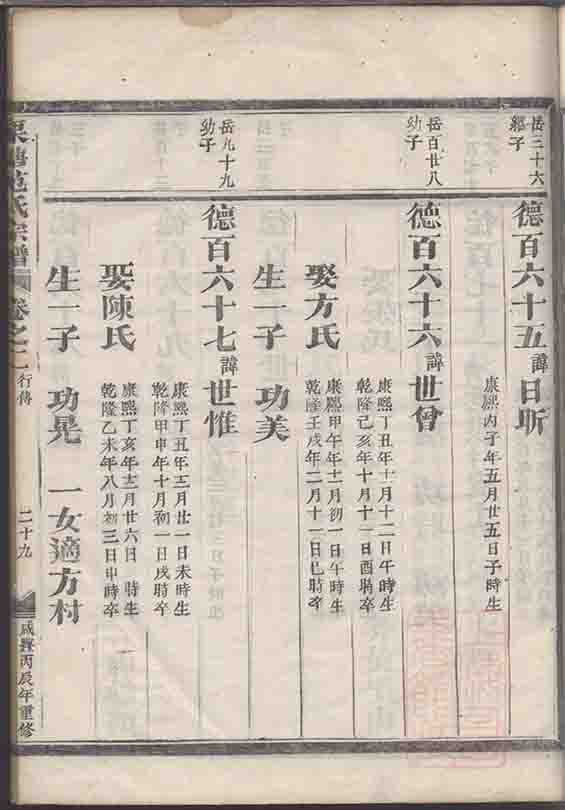 岳三十六
繼子
德百六十五 諱日昕
康熙丙子年五月廿五日子時生
岳百廿八
幼子
德百六十六 諱世曾
康熙丁丑年十一月十二日午時生
乾隆己亥年十月十一日酉時卒
娶方氏
康熙甲午年十二月初一日午時生
乾隆壬戌年二月十一日巳時卒
生一子 功美
岳九十九
幼子
德百六十七 諱世惟
康熙丁丑年三月廿一日未時生
乾隆甲申年十月初一日戌時卒
娶陳氏
康熙丁亥年十二月廿六日 時生
乾隆乙未年八月初三日申時卒
生一子 功晃 一女適方村
范氏宗譜 卷之二 行傳 二十九 咸豐丙辰年重修